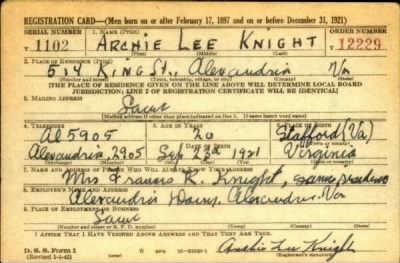 REGISTRATION CARD—(Men born on or after February 17, 1897 and on or before December 31, 1921)
SERIAL NUMBER 1. NAME (Print) ORDER NUMBER
T 1102 ARCHIE LEE KNIGHT T 12229
(First) (Middle) (Last)
2. PLACE OF RESIDENCE (Print)
514 King St., Alexandria Va
(Number and street) (Town, township, village, or city) (County) (State)
[THE PLACE OF RESIDENCE GIVEN ON THE LINE ABOVE WILL DETERMINE LOCAL BOARD
JURISDICTION; LINE 2 OF REGISTRATION CERTIFICATE WILL BE IDENTICAL]
3. MAILING ADDRESS
Same
[Mailing address if other than place indicated on line 2. If same insert word same]
4. TELEPHONE 5. AGE IN YEARS 6. PLACE OF BIRTH
Al 5905 20 Stafford (Va)
DATE OF BIRTH
Alexandria 2905 Sep 23 1921 Virginia
7. NAME AND ADDRESS OF PERSON WHO WILL ALWAYS KNOW YOUR ADDRESS
Mrs Frances R. Knight, same
8. EMPLOYER'S NAME AND ADDRESS
Alexandria Dairy, Alexandria Va
9. PLACE OF EMPLOYMENT OR BUSINESS
Same
(Number and street or R. F. D. number) (Town) (County) (State)
I AFFIRM THAT I HAVE VERIFIED ABOVE ANSWERS AND THAT THEY ARE TRUE.
D. S. S. Form 1 GPO Archie Lee Knight
(Revised 1-1-42) (Registrant's signature)